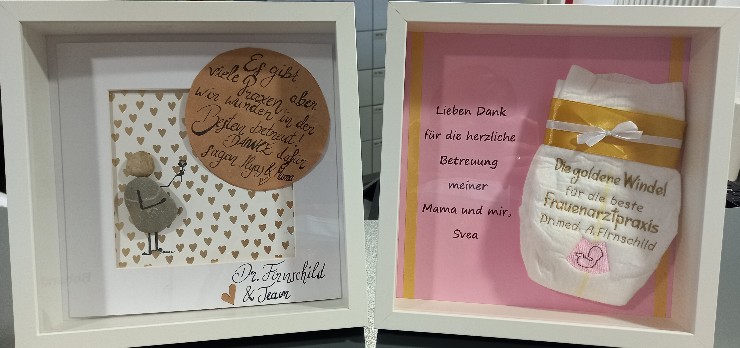 Es gibt
viele Praxen aber
wir wurden in der
Besten betreut!
DANKE dafür
sagen Ilyas & Mama
Dr. Firnschild
& Team
Lieben Dank
für die herzliche
Betreuung
meiner
Mama und mir,
Svea
Die goldene Windel
für die beste
Frauenarztpraxis
Dr. med. A. Firnschild